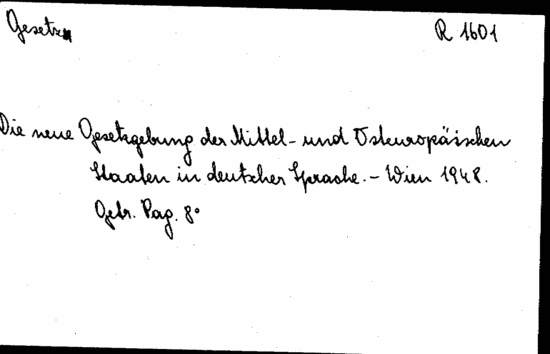 Gesetz
R 1601
Die neue Gesetzgebung der Mittel- und Osteuropäischen
Staaten in deutscher Sprache. - Wien 1948.
Getr. Pag. 8°